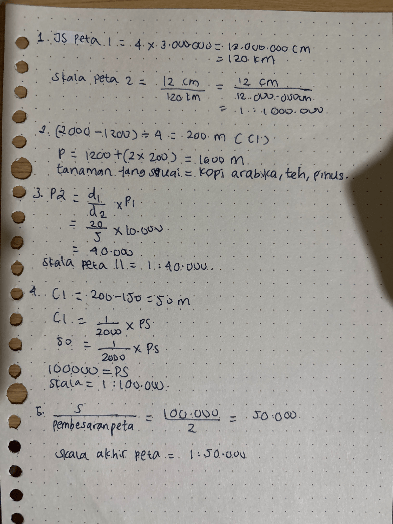 1. JS Peta 1 = 4 x 3.000.000 = 12.000.000 cm
= 120 km
Skala peta 2 = 12 cm / 120 km = 12 cm / 12.000.000 cm
= 1 : 1000.000
2. (2000 - 1200) ÷ 4 = 200 m (CI)
P = 1200 + (2 x 200) = 1600 m
tanaman yang sesuai = kopi arabika, teh, pinus.
3. P2 = d1 / d2 x P1
= 20 / 5 x 10.000
= 40.000
Skala peta II = 1 : 40.000.
4. CI = 200 - 150 = 50 m
CI = 1 / 2000 x PS
50 = 1 / 2000 x PS
100000 = PS
Skala = 1 : 100.000.
5. S / pembesaran peta = 100.000 / 2 = 50.000
Skala akhir peta = 1 : 50.000